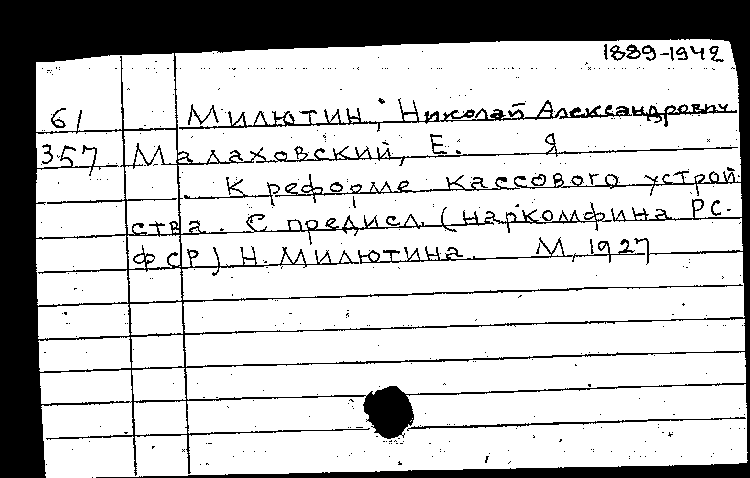 1889-1942
61 Милютин, Николай Александрович
357 Малаховский, Е. Я.
К реформе кассового устрой
ства. С предисл. (наркомфина РС.
ФСР) Н. Милютина. М, 1927